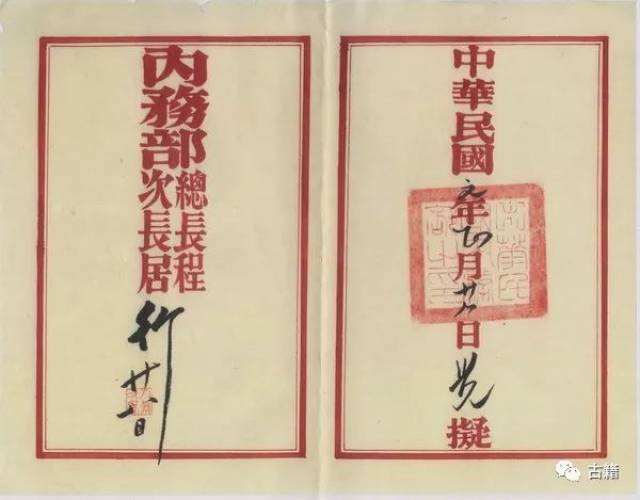 中華民國元年正月廿日擬
内務部
總長程
次長居
行
日
古籍